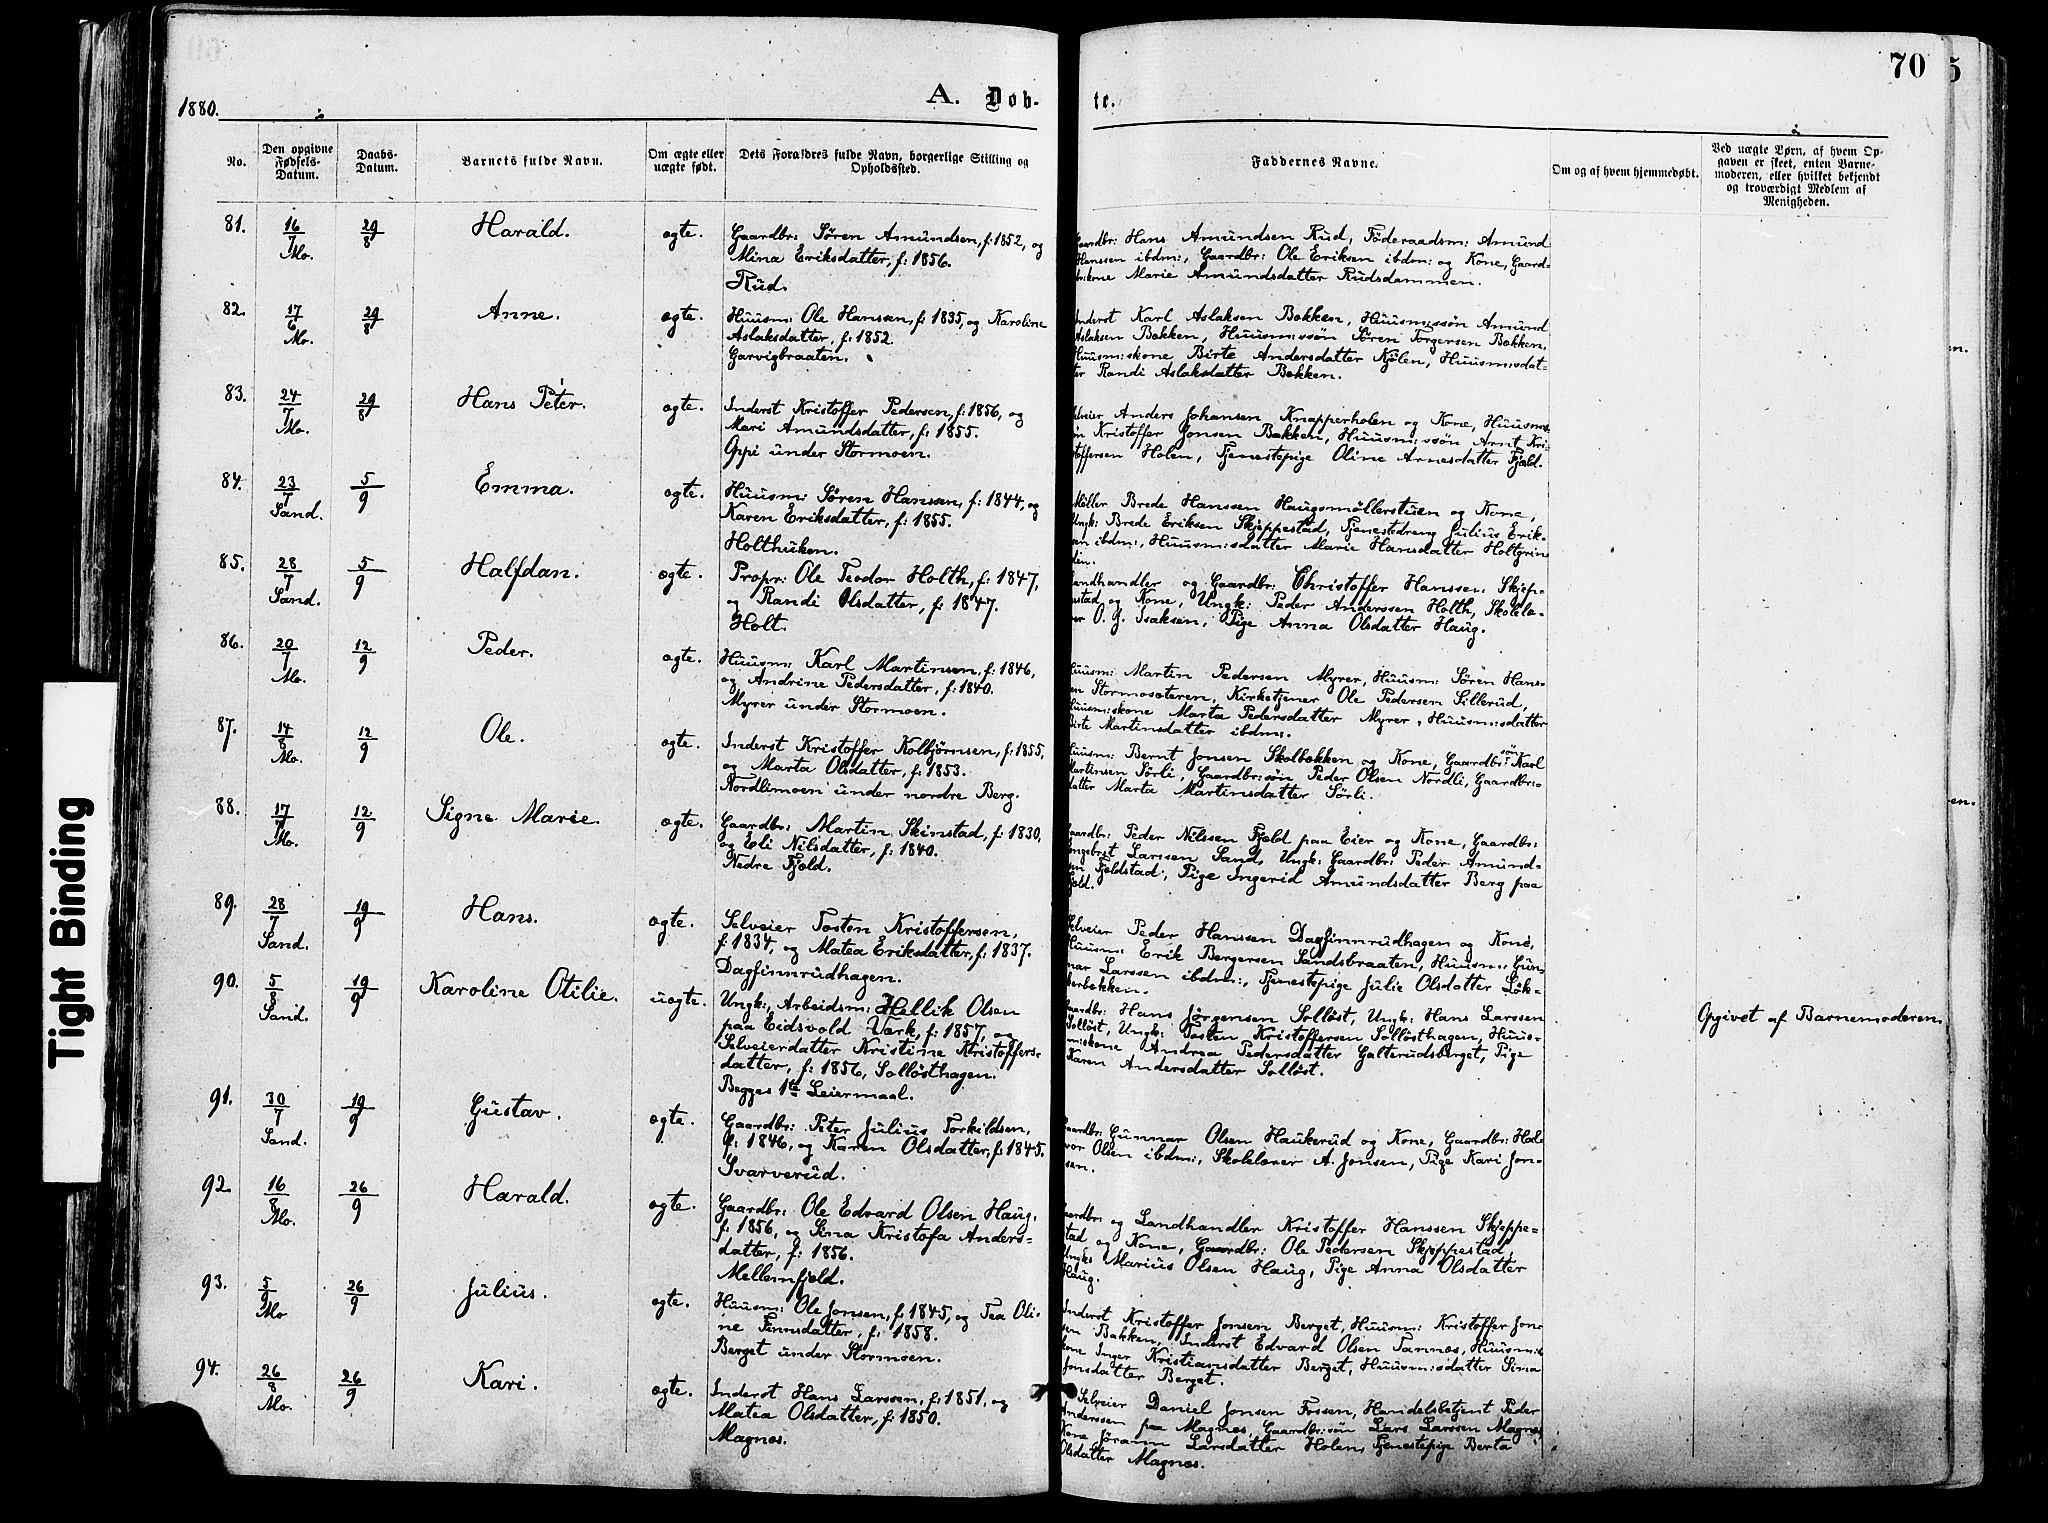 70
5
1880.
A. Døb-
te.
No.
Den opgivne Fødsels-Datum.
Daabs-Datum.
Barnets fulde Navn.
Om ægte eller uægte født.
Dets Forældres fulde Navn, borgerlige Stilling og Opholdssted.
Faddernes Navne.
Om og af hvem hjemmedøbt.
Ved uægte Børn, af hvem Op-
gaven er skeet, enten Barne-
moderen, eller hvilket bekjendt
og troværdigt Medlem af
Menigheden.
81. 16/7 Mo. 29/8 Harald. ægte.
Gaardbr: Søren Amundsen, f: 1852, og
Mina Eriksdatter, f: 1856.
Rud.
Gaardbr: Hans Amundsen Rud, Föderaadsm: Amund
Hanssen ibdm:, Gaardbr: Ole Eriksen ibdm: og Kone, Gaard-
brkone Marie Amundsdatter Rudsdammen.
82. 17/6 Mo. 29/8 Anne. ægte.
Huusm: Ole Hanssen, f: 1835, og Karoline
Aslaksdatter, f: 1852.
Garvigbraaten.
Inderst Karl Aslaksen Bakken, Huusm:ssön Amund
Aslaksen Bakken, Huusm:ssön Søren Torgersen Bakken,
Huusm:skone Birte Andersdatter Kjølen, Huusm:sdat-
ter Randi Aslaksdatter Bakken.
83. 24/7 Mo. 29/8 Hans Peter. ægte.
Inderst Kristoffer Pedersen, f: 1856, og
Mari Amundsdatter, f: 1855.
Oppi under Stormoen.
Selveier Anders Johansen Knapperholen og Kone, Huusms-
sön Kristoffer Jonsen Bakken, Huusm:ssön Arnt Kri-
stoffersen Holen, Tjenestepige Oline Arnesdatter Fjæld.
84. 23/7 Sand. 5/9 Emma. ægte.
Huusm: Søren Hanssen, f: 1844, og
Karen Eriksdatter, f: 1855.
Holthuken.
Møller Brede Hanssen Haugsmøllerstuen og Kone,
Ungk: Brede Eriksen Skjeppestad, Tjenestedreng Julius Erik-
sen ibdm:, Huusm:sdatter Marie Hansdatter Holtgrin-
den.
85. 28/7 Sand. 5/9 Halfdan. ægte.
Propr: Ole Teodor Holth, f: 1847,
og Randi Olsdatter, f: 1847.
Holt.
Landhandler og Gaardbr: Christoffer Hanssen Skjep-
pestad og Kone, Ungk: Peder Anderssen Holth, Skolelæ-
rer O. G. Isaksen, Pige Anna Olsdatter Haug.
86. 20/7 Mo. 12/9 Peder. ægte.
Huusm: Karl Martinsen, f: 1846,
og Andrine Pedersdatter, f: 1840.
Myrer under Stormoen.
Huusm: Martin Pedersen Myrer, Huusm: Søren Hans-
sen Stormosæteren, Kirketjener Ole Pedersen Sillerud,
Huusm:skone Marta Pedersdatter Myrer, Huusm:sdatter
Birte Martinsdatter ibdm:.
87. 14/8 Mo. 12/9 Ole. ægte.
Inderst Kristoffer Kolbjörnsen, f: 1855,
og Marta Olsdatter, f: 1853.
Nordlimoen under nordre Berg.
Huusm: Bernt Jonsen Skolbakken og Kone, Gaardbr:sön Karl
Martinsen Sörli, Gaardbr:sön Peder Olsen Nordli, Gaardbr:-
datter Marta Martinsdatter Sörli.
88. 17/7 Mo. 12/9 Signe Marie. ægte.
Gaardbr: Martin Skinstad, f: 1830,
og Eli Nilsdatter, f: 1840.
Nedre Fjæld.
Gaardbr: Peder Nilssen Fjæld paa Eier og Kone, Gaardbr:
Engebret Larssen Sand, Ungk: Gaardbr: Peder Amund-
sen Fjeldstad, Pige Ingerid Amundsdatter Berg paa
Fjæld.
89. 28/7 Sand. 19/9 Hans. ægte.
Selveier Tosten Kristoffersen,
f: 1834, og Matea Eriksdatter, f: 1837.
Dagfinnrudhagen.
Selveier Peder Hanssen Dagfinnrudhagen og Kone,
Huusm: Erik Bergersen Sandsbraaten, Huusm: Gun-
nar Larssen ibdm:, Tjenestepige Julie Olsdatter Løk-
kerbakken.
90. 5/8 Sand. 19/9 Karoline Otilie. uægte.
Ungk:, Arbeidsm: Hellik Olsen
paa Eidsvold Værk, f: 1857, og
Selveierdatter Kristine Kristoffers-
datter, f: 1856, Solløsthagen.
Begges 1ste Leiermaal.
Gaardbr: Hans Jørgensen Solløst, Ungk: Hans Larssen
Solløst, Ungk: Tosten Kristoffersen Solløsthagen, Huus-
m:skone Andrea Pedersdatter Galterudsberget, Pige
Karen Andersdatter Solløst.
Opgivet af Barnemoderen.
91. 30/7 Sand. 19/9 Gustav. ægte.
Gaardbr: Peter Julius Torkildsen,
f: 1846, og Karen Olsdatter, f: 1845.
Svarverud.
Gaardbr: Gunnar Olsen Haukerud og Kone, Gaardbr: Hal-
vor Olsen ibdm:, Skolelærer A. Jonsen, Pige Kari Jon-
sen.
92. 16/8 Mo. 26/9 Harald. ægte.
Gaardbr: Ole Edvard Olsen Haug,
f: 1856, og Sina Kristofa Anders-
datter, f: 1856.
Mellemfjeld.
Gaardbr: og Landhandler Kristoffer Hanssen Skjeppe-
stad og Kone, Gaardbr: Ole Pedersen Skjeppestad,
Ungk: Marius Olsen Haug, Pige Anna Olsdatter
Haug.
93. 5/9 Mo 26/9 Julius. ægte.
Huusm: Ole Jonsen, f: 1845, og Tea Oli-
ne Finnsdatter, f: 1858.
Berget under Stormoen.
Inderst Kristoffer Jonsen Berget, Huusm: Kristoffer Jon-
sen Bakken, Inderst Edvard Olsen Tamnes, Huusm:s
kone Inger Kristiansdatter Berget, Huusm:sdatter Sina
Jonsdatter Berget.
94. 26/8 Mo. 26/9 Kari. ægte.
Inderst Hans Larssen, f: 1851, og
Matea Olsdatter, f: 1850.
Magnæs.
Selveier Daniel Jonsen Fossen, Handelsbetjent Peder
Anderssen paa Magnæs, Gaardbr:sön Lars Larssen Magnæs,
Kone Jørann Larsdatter Holen, Tjenestepige Berta
Olsdatter Magnæs.
en.
en.
Tight Binding